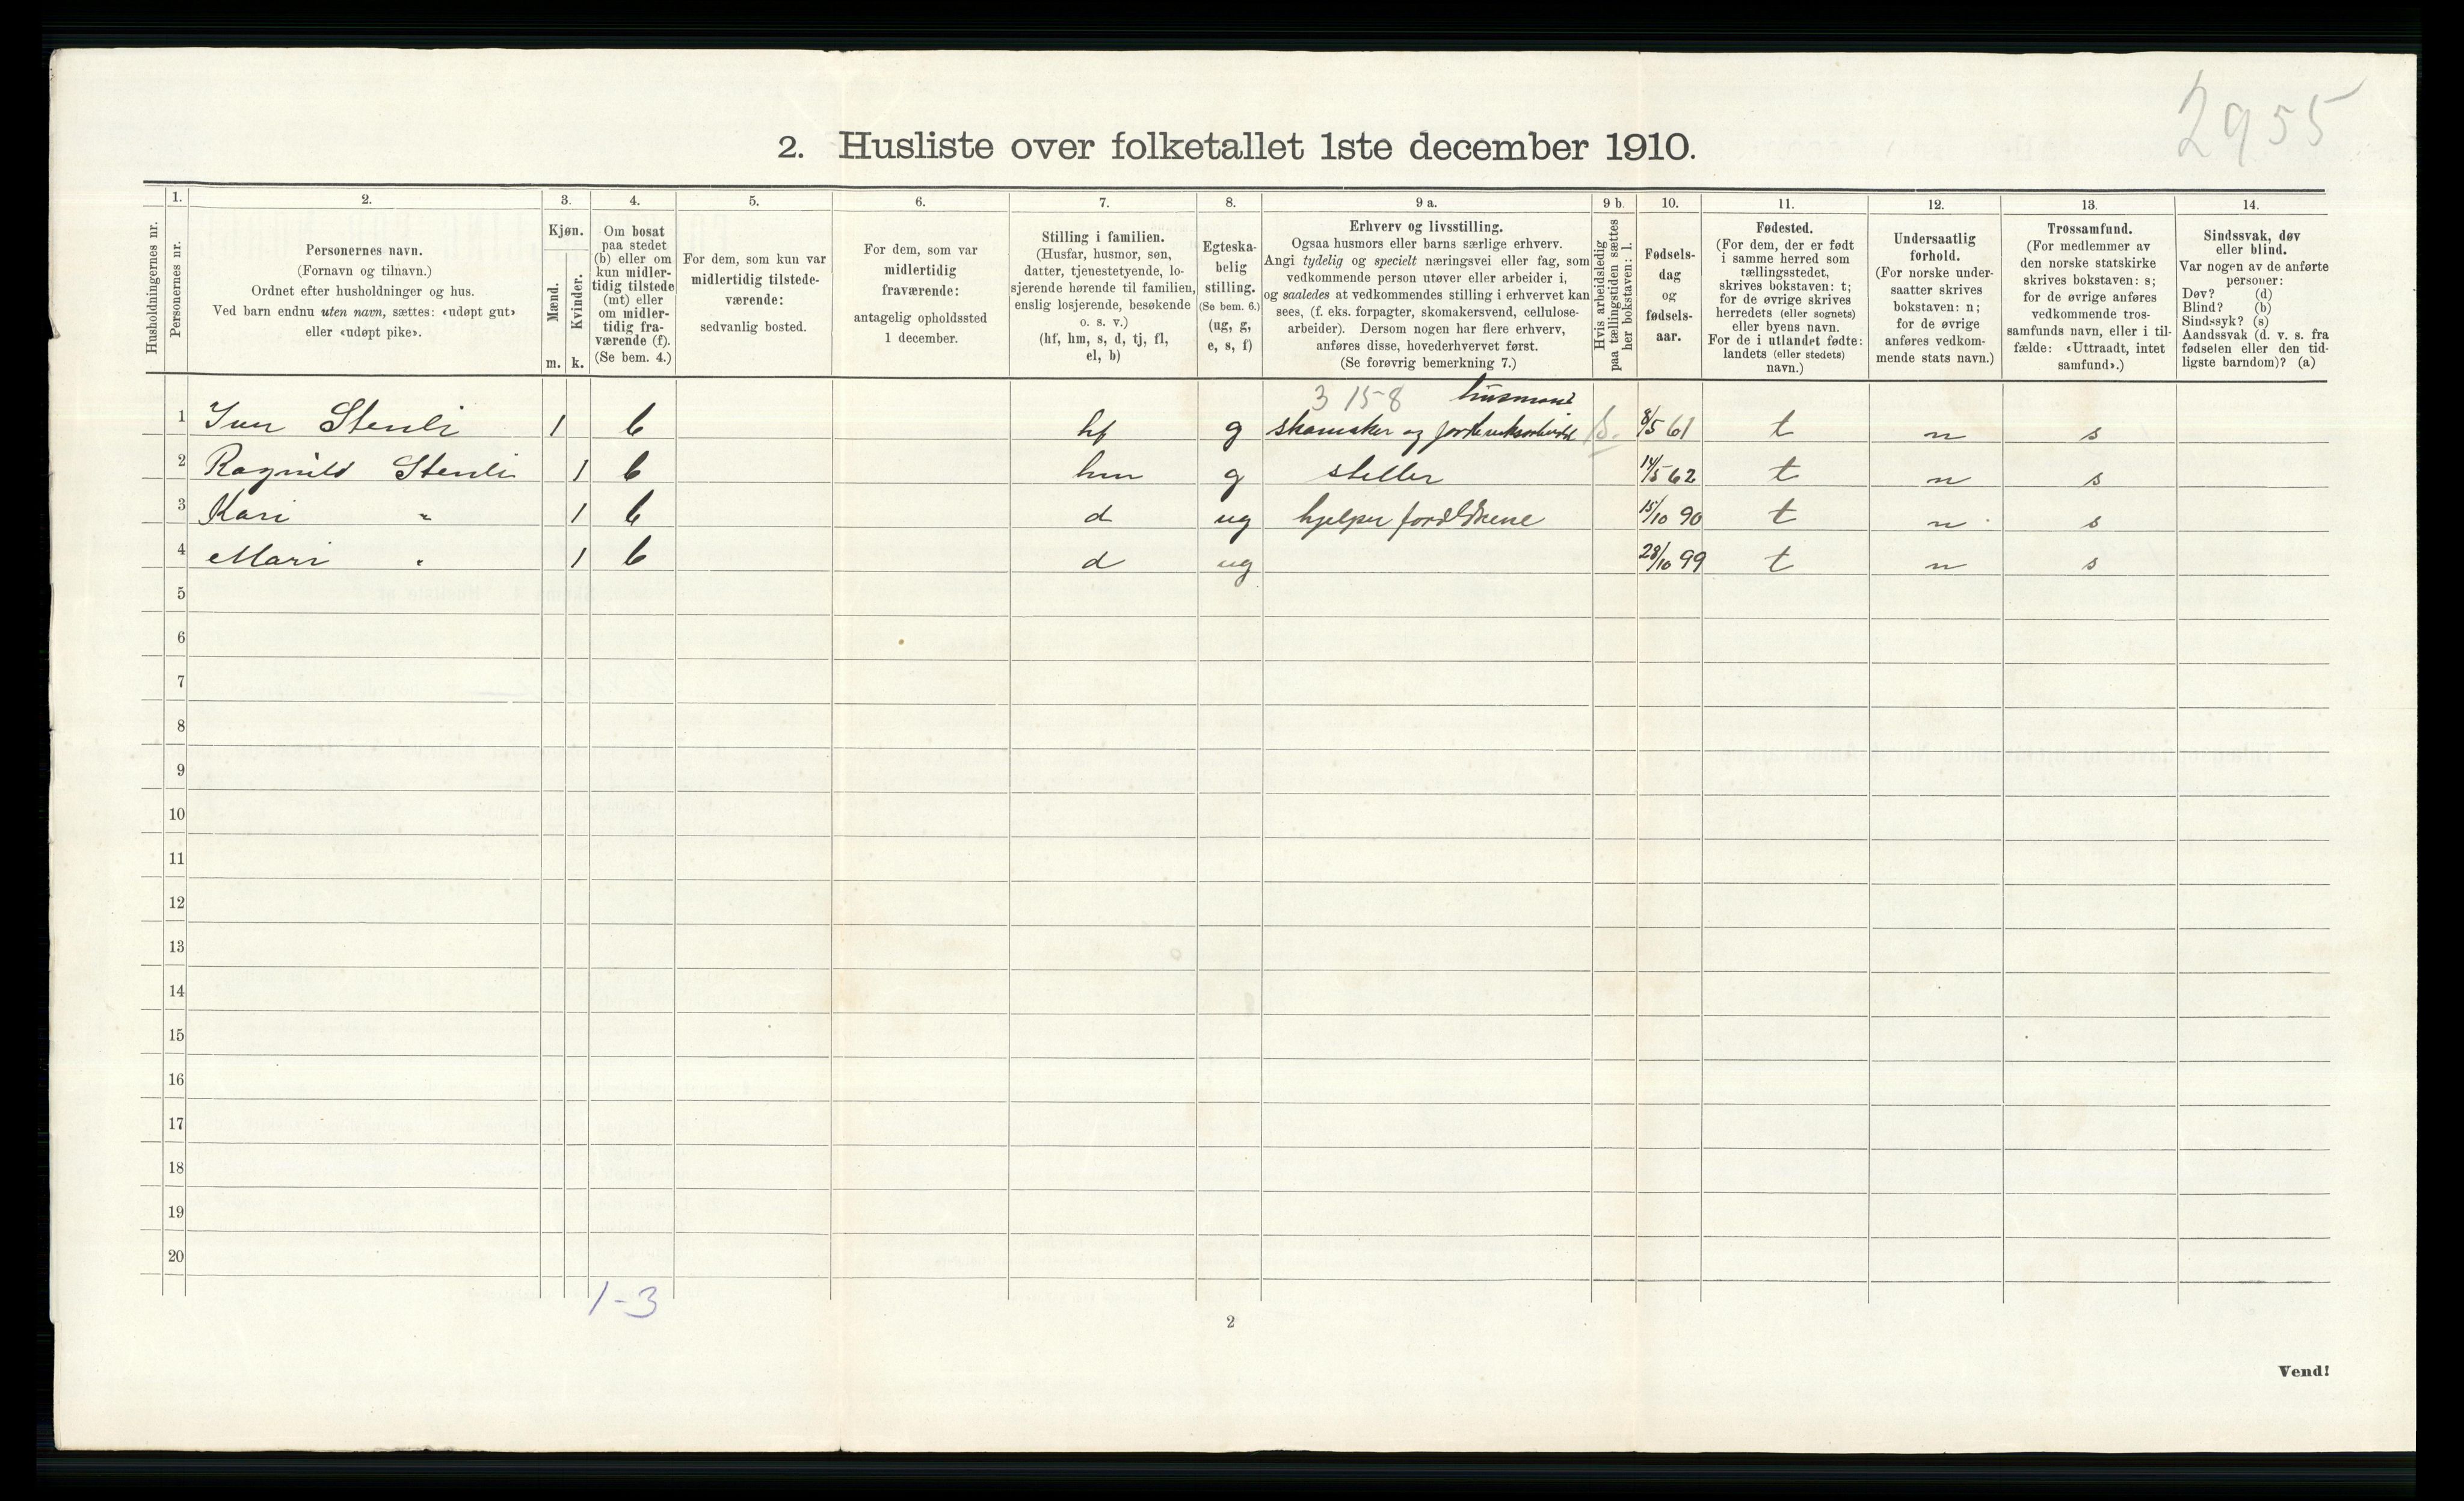 2955
2. Husliste over folketallet 1ste december 1910.
Husholdningernes nr.
1.
Personernes nr.
2.
Personernes navn.
(Fornavn og tilnavn.)
Ordnet efter husholdninger og hus.
Ved barn endnu uten navn, sættes: «udøpt gut»
eller «udøpt pike».
3.
Kjøn.
Mænd.
m.
Kvinder.
k.
4.
Om bosat
paa stedet
(b) eller om
kun midler-
tidig tilstede
(mt) eller
om midler-
tidig fra-
værende (f).
(Se bem. 4.)
5.
For dem, som kun var
midlertidig tilstede-
værende:
sedvanlig bosted.
6.
For dem, som var
midlertidig
fraværende:
antagelig opholdssted
1 december.
7.
Stilling i familien.
(Husfar, husmor, søn,
datter, tjenestetyende, lo-
sjerende hørende til familien,
enslig losjerende, besøkende
o. s. v.)
(hf, hm, s, d, tj, fl,
el, b)
8.
Egteska-
belig
stilling.
(Se bem. 6.)
(ug, g,
e, s, f)
9 a.
Erhverv og livsstilling.
Ogsaa husmors eller barns særlige erhverv.
Angi tydelig og specielt næringsvei eller fag, som
vedkommende person utøver eller arbeider i,
og saaledes at vedkommendes stilling i erhvervet kan
sees, (f. eks. forpagter, skomakersvend, cellulose-
arbeider). Dersom nogen har flere erhverv,
anføres disse, hovederhvervet først.
(Se forøvrig bemerkning 7.)
9 b.
Hvis arbeidsledig
paa tællingstiden sættes
her bokstaven: l.
10.
Fødsels-
dag
og
fødsels-
aar.
11.
Fødested.
(For dem, der er født
i samme herred som
tællingsstedet,
skrives bokstaven: t;
for de øvrige skrives
herredets (eller sognets)
eller byens navn.
For de i utlandet fødte:
landets (eller stedets)
navn.)
12.
Undersaatlig
forhold.
(For norske under-
saatter skrives
bokstaven: n;
for de øvrige
anføres vedkom-
mende stats navn.)
13.
Trossamfund.
(For medlemmer av
den norske statskirke
skrives bokstaven: s;
for de øvrige anføres
vedkommende tros-
samfunds navn, eller i til-
fælde: «Uttraadt, intet
samfund».)
14.
Sindssvak, døv
eller blind.
Var nogen av de anførte
personer:
Døv? (d)
Blind? (b)
Sindssyk? (s)
Aandssvak (d. v. s. fra
fødselen eller den tid-
ligste barndom)? (a)
3 15-8 husmand
1 Iver Stenli 1 b hf g skomaker og 8/5 61 t n s
2 Ragnild Stenli 1 b hm g steller 14/5 62 t n s
3 Kari " 1 b d ug hjelper forældrene 15/10 90 t n s
4 Mari " 1 b d ug 28/10 99 t n s
5
6
7
8
9
10
11
12
13
14
15
16
17
18
19
20
1-3
2
Vend!